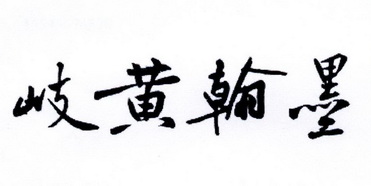 岐黄翰墨